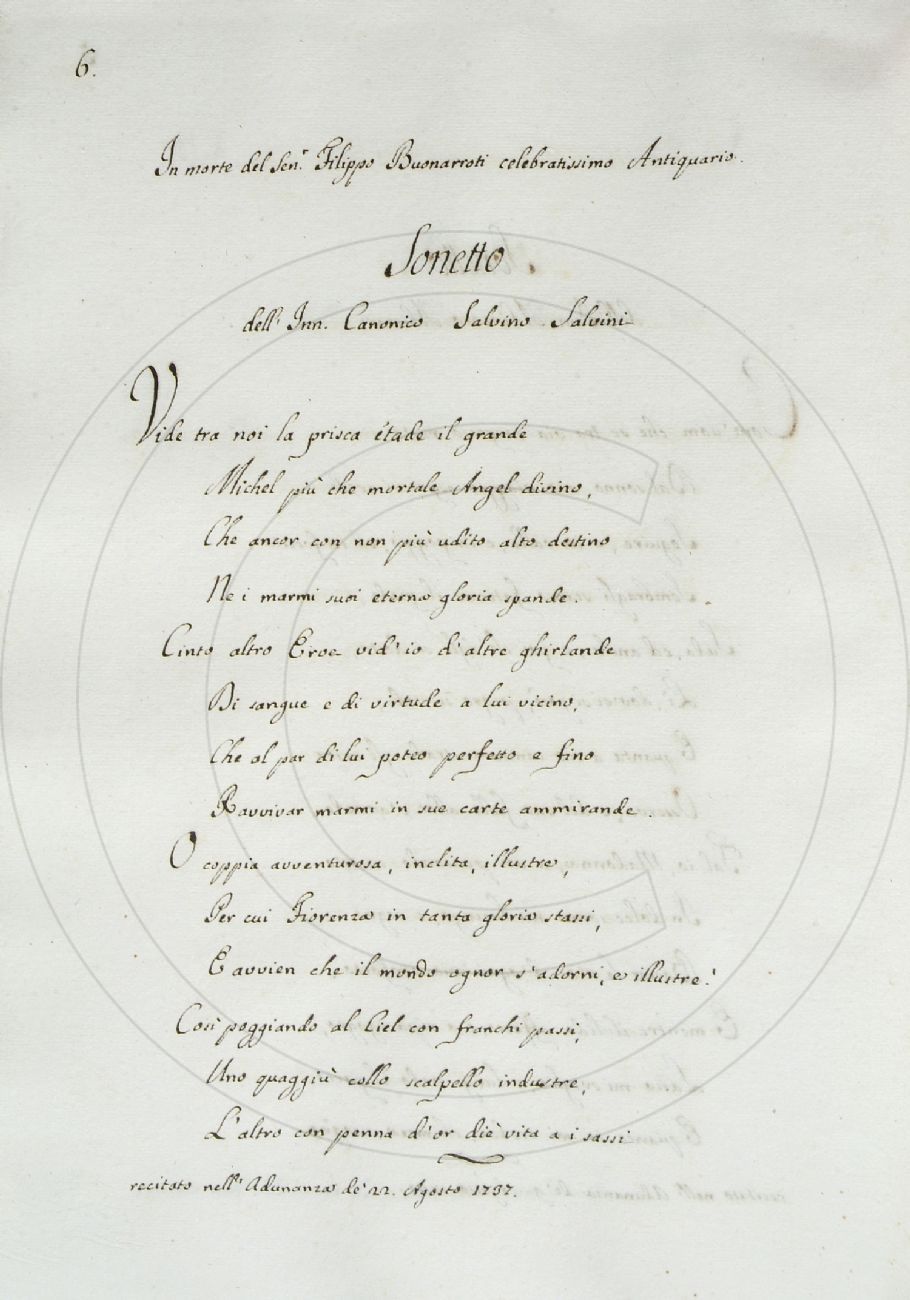 6.
In morte del Sen.r Filippo Buonarroti celebratissimo Antiquario.
Sonetto
dell' Inn. Canonico Salvino Salvini
Vide tra noi la prisca étade il grande
Michel più che mortale Angel divino,
Che ancor con non più udito alto destino
Ne i marmi suoi eterna gloria spande.
Cinto altro Eroe vid' io d' altre ghirlande
Di sangue e di virtude a lui vicino,
Che al par di lui poteo perfetto e fino
Ravvivar marmi in sue carte ammirande.
O coppia avventurosa, inclita, illustre,
Per cui Fiorenza in tanta gloria stassi,
E avvien che il mondo ognor s' adorni, e illustre!
Così poggiando al Ciel con franchi passi,
Uno quaggiù collo scalpello industre,
L' altro con penna d' or diè vita a i sassi
recitato nell' Adunanza de' 22. Agosto 1737.